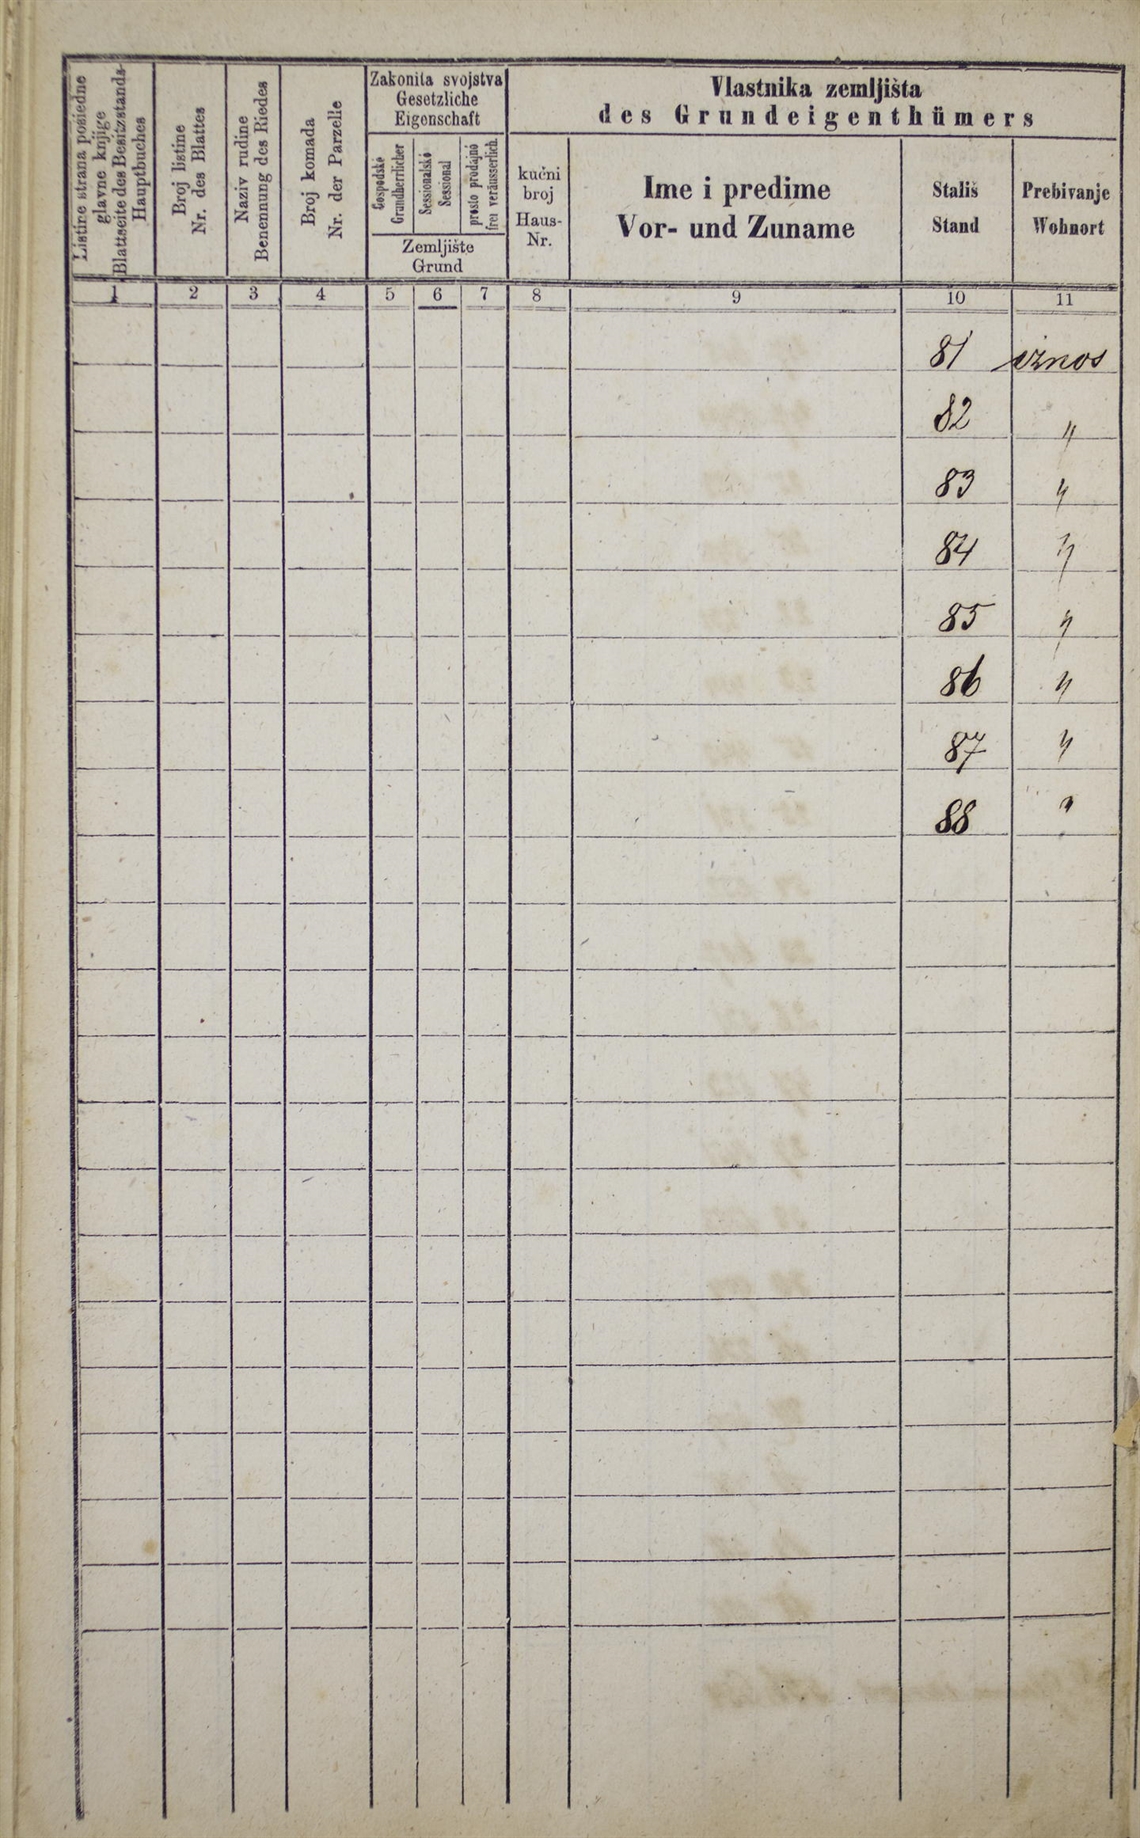 Listine strana posiedne
glavne knjige
Blattseite des Besitzstands-
Hauptbuches
Broj listine
Nr. des Blattes
Naziv rudine
Benennung des Riedes
Broj komada
Nr. der Parzelle
Zakonita svojstva
Gesetzliche
Eigenschaft
Gospodsko
Grundherrlicher
Sessionalsko
Sessional
prosto prodajno
frei veräusserlich.
Zemljište
Grund
Vlastnika zemljišta
des Grundeigenthümers
kućni
broj
Haus-
Nr.
Ime i predime
Vor- und Zuname
Stališ
Stand
Prebivanje
Wohnort
1 2 3 4 5 6 7 8 9 10 11
81 iznos
82 "
83 "
84 "
85 "
86 "
87 "
88 "